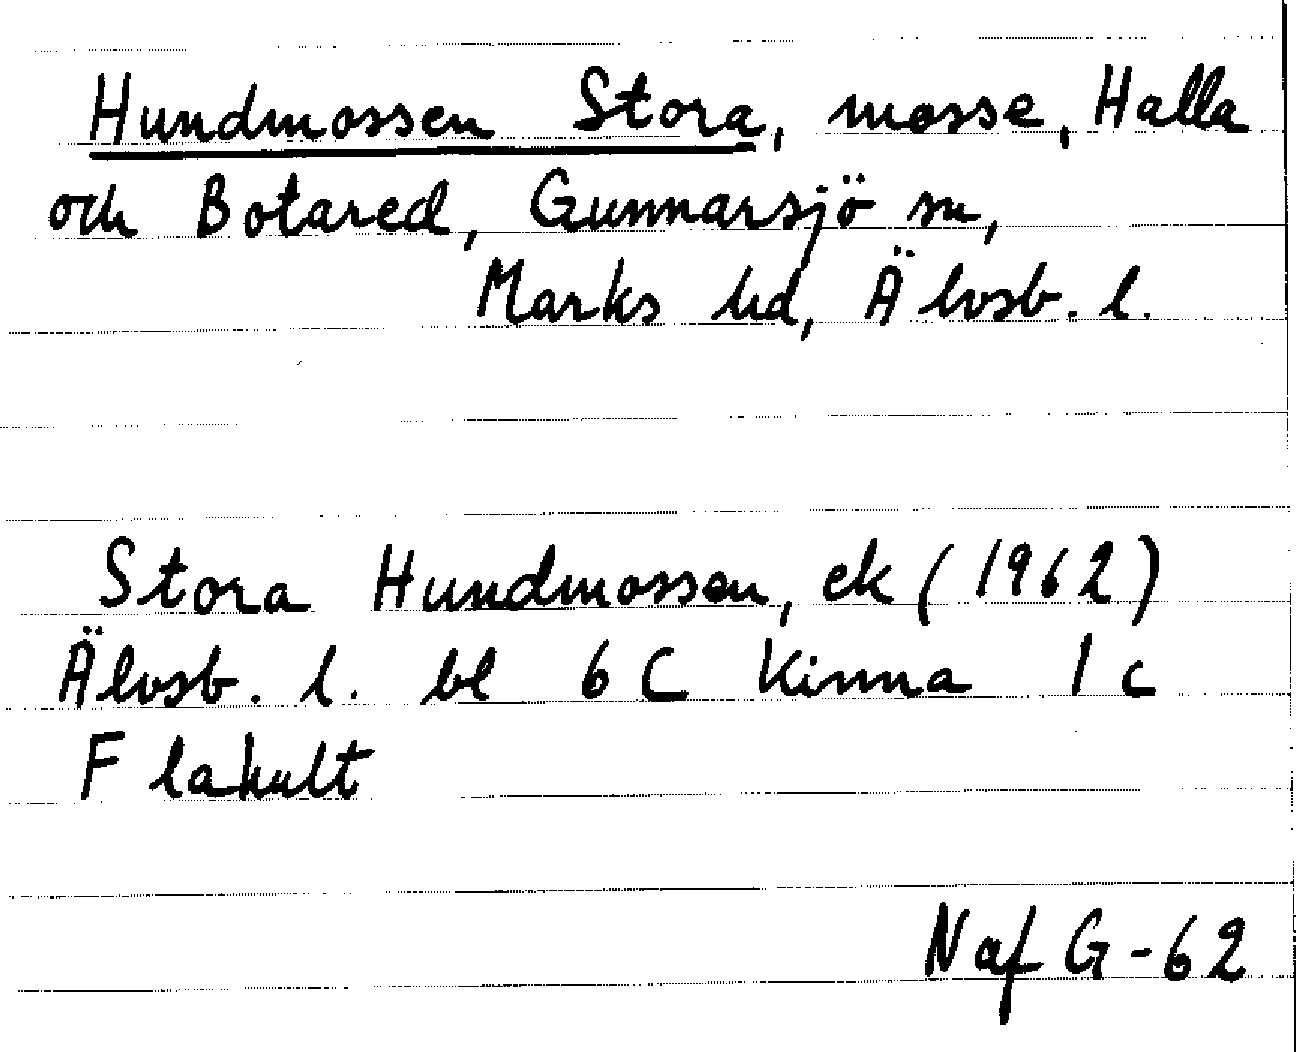 Hundmossen Stora, mosse, Halla
och Botared, Gunnarsjö sn,
Marks hd, Älvsb. l.
Stora Hundmossen, ek (1962)
Älvsb. l. bl 6 C Kinna 1 c
Flahult
Naf G-62